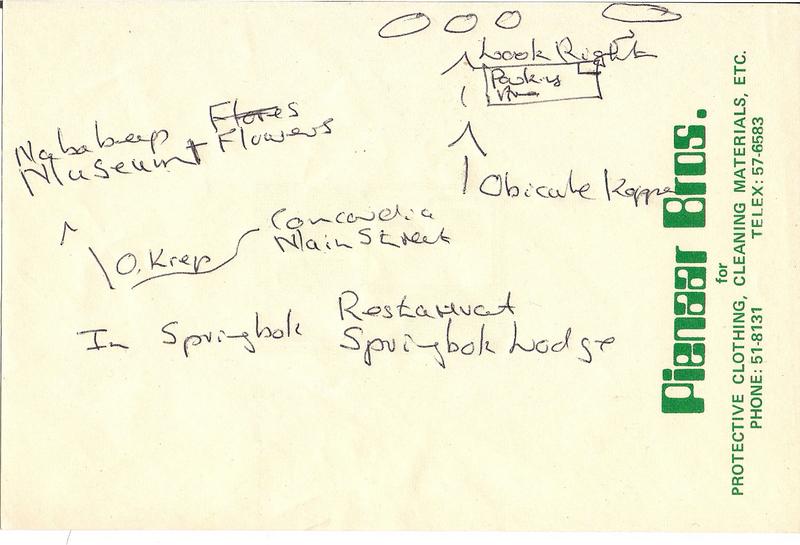 Look Right
Parking
Flores
Nababeep + Flowers
Museum
Obicule Koppe
Concordia
Main Street
O. Kiep
Restaurant
In Springbok Springbok Lodge
Pienaar Bros.
for
PROTECTIVE CLOTHING, CLEANING MATERIALS, ETC.
PHONE: 51-8131 TELEX: 57-6583